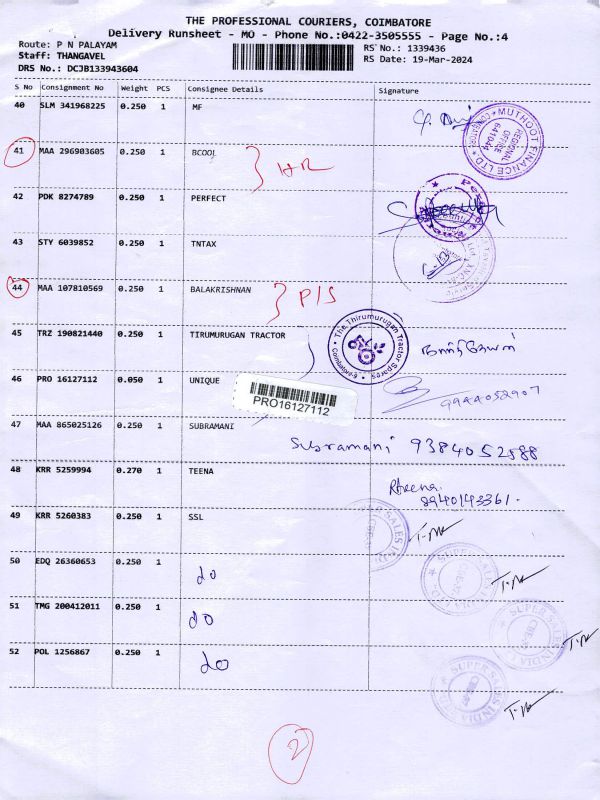 THE PROFESSIONAL COURIERS, COIMBATORE
Delivery Runsheet - MO - Phone No.:0422-3505555 - Page No.:4
Route: P N PALAYAM
Staff: THANGAVEL
DRS No.: DCJB133943604
RS No.: 1339436
RS Date: 19-Mar-2024
S No Consignment No Weight PCS Consignee Details Signature
40 SLM 341968225 0.250 1 MF
MUTHOOT FINANCE LTD
REGIONAL OFFICE 641044
41 MAA 296903605 0.250 1 BCOOL
42 PDK 8274789 0.250 1 PERFECT
43 STY 6039852 0.250 1 TNTAX
44 MAA 107810569 0.250 1 BALAKRISHNAN P/S
45 TRZ 190821440 0.250 1 TIRUMURUGAN TRACTOR
The Thirumurugan Tractor Spares
Coimbatore
46 PRO 16127112 0.050 1 UNIQUE
PRO16127112
9944052907
47 MAA 865025126 0.250 1 SUBRAMANI
Subramani 9384052588
48 KRR 5259994 0.270 1 TEENA
8940143361.
49 KRR 5260383 0.250 1 SSL
50 EDQ 26360653 0.250 1 do
SUPER SALES INDIA LTD
51 TMG 200412011 0.250 1 do
SUPER SALES INDIA
52 POL 1256867 0.250 1 do
SUPER SALES INDIA
2